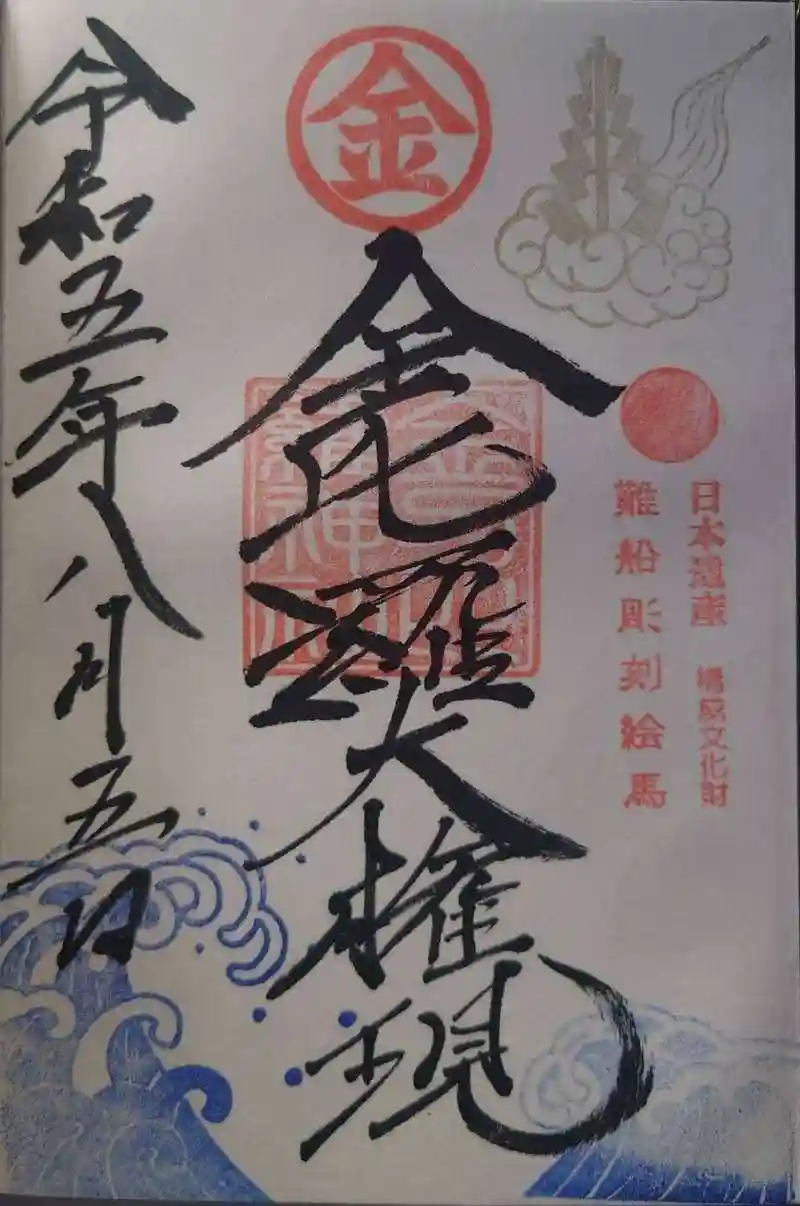 金
日本遺産 橿原文化財
難船彫刻絵馬
金毘羅大権現
令和五年八月五日